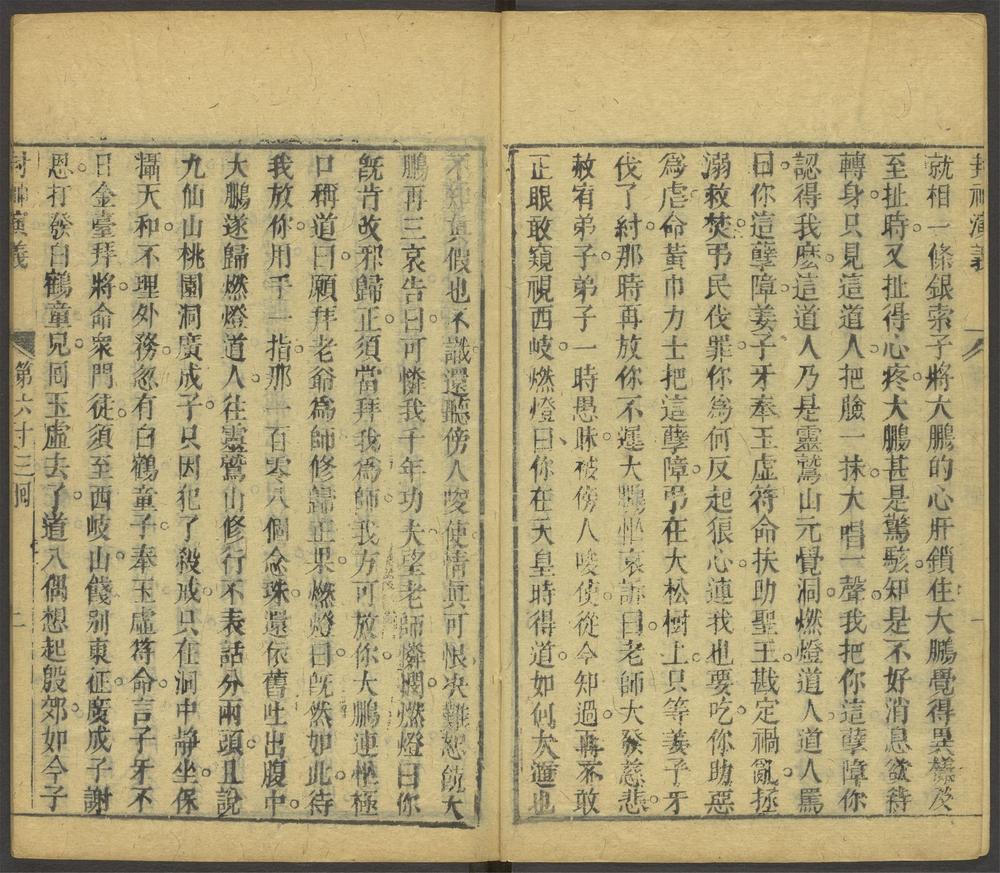 封神演義
就相一條銀索子將大鵬的心肝鎖住大鵬覺得異樣及
至扯時又扯得心疼大鵬甚是驚駭知是不好消息欲待
轉身只見這道人把臉一抹大唱一聲我把你這孽障你
認得我麽這道人乃是靈鷲山元覺洞燃燈道人道人罵
曰你這孽障姜子牙奉玉虛符命扶助聖王戡定禍亂拯
溺救焚弔民伐罪你爲何反起狠心連我也要吃你助惡
爲虐命黃巾力士把這孽障弔在大松樹上只等姜子牙
伐了紂那時再放你不遲大鵬忙哀訴曰老師大發慈悲
赦宥弟子弟子一時愚昧被傍人唆使從今知過再不敢
正眼敢窺視西岐燃燈曰你在天皇時得道如何大運也
不知眞假也不識還聽傍人唆使情眞可恨决難恕饒大
鵬再三哀告曰可憐我千年功夫望老師憐憫燃燈曰你
旣肯改邪歸正須當拜我爲師我方可放你大鵬連忙極
口稱道曰願拜老爺爲師修歸正果燃燈曰旣然如此待
我放你用手一指那一百零八個念珠還依舊吐出腹中
大鵬遂歸燃燈道人往靈鷲山修行不表話分兩頭且說
九仙山桃園洞廣成子只因犯了殺戒只在洞中靜坐保
攝天和不理外務忽有白鶴童子奉玉虛符命言子牙不
日金臺拜將命衆門徒須至西岐山餞别東征廣成子謝
恩打發白鶴童兒囘玉虛去了道人偶想起殷郊如今子
封神演義 第六十三囘 二